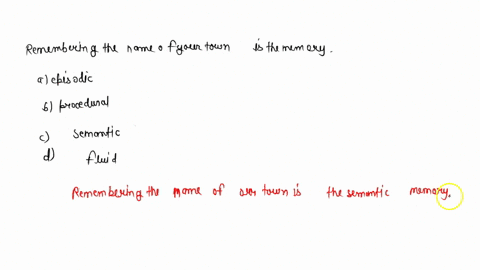 Remembering the name of your town is the memory.
a) episodic
b) procedural
c) semantic
d) fluid
Remembering the name of our town is the semantic memory.